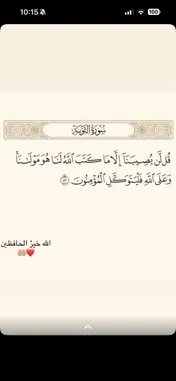 10:15
100
سورة التوبة
قُل لَّن يُصِيبَنَآ إِلَّا مَا كَتَبَ ٱللَّهُ لَنَا هُوَ مَوْلَىٰنَا ۚ
وَعَلَى ٱللَّهِ فَلْيَتَوَكَّلِ ٱلْمُؤْمِنُونَ ٥١
الله خيرُ الحافظين
🤲🏼❤️